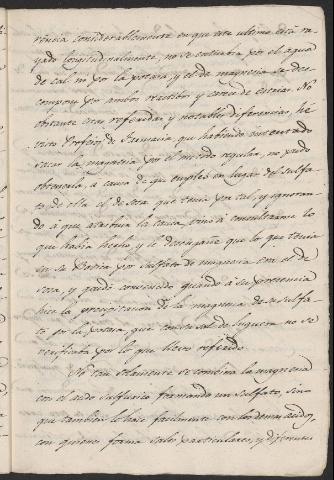 rencia considerablemente en que este ultimo está ra-
yado longitudinalmente, no se enturbia por el agua
de cal ni por la potasa, y el de magnesia se des-
compone por ambos reactivos y carece de estrias. No
obstante estas referidas y notables diferencias, he
visto Profesor de Farmacia que habiendo intentado
sacar la magnesia por el metodo regular, no pudo
obtenerla, à causa de que empleó en lugar del sulfa-
to de ella el de sosa que tenia por sal, y ignoran-
do á que atribuir la causa, vino á consultarme lo
que habia hecho y le desengañé que lo que tenia
en su Botica por sulfato de magnesia era el de
sosa, y quedó convencido quando à su presencia
hice la precipitacion de la magnesia de su sulfa-
to por la potasa, que con la sal de higuera no se
verificaba por lo que llevo referido.
No tan solamente se combina la magnesia
con el acido sulfurico formando un sulfato, sino
que tambien lo hace facilmente con los demas acidos,
con quienes forma sales particulares, y diferentes